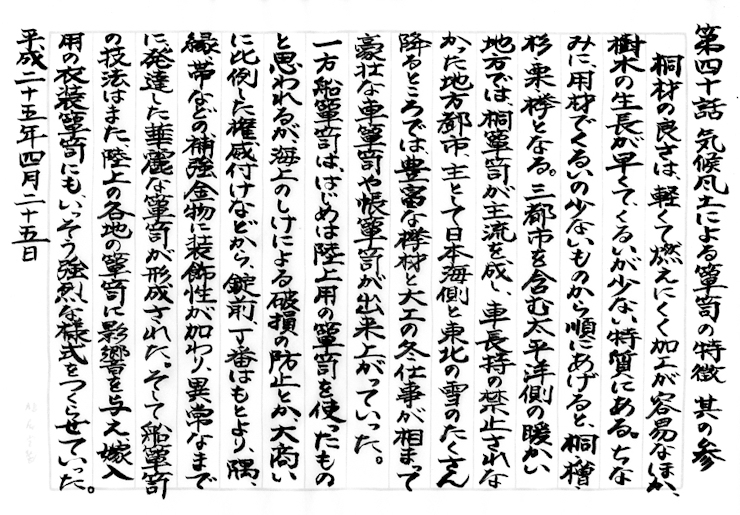 第四十話 気候風土による簞笥の特徴 其の参
桐材の良さは、軽くて燃えにくく加工が容易なほか、
樹木の生長が早くて、くるいが少ない特質にある。ちな
みに、用材でくるいの少ないものから順にあげると、桐、檜、
杉、栗、欅となる。三都市を含む太平洋側の暖かい
地方では、桐簞笥が主流を成し、車長持の禁止されな
かった地方都市、主として日本海側と東北の雪のたくさん
降るところでは、豊富な欅材と大工の冬仕事が相まって
豪壮な車簞笥や帳簞笥が出来上がっていった。
一方船簞笥は、はじめは陸上用の簞笥を使ったもの
と思われるが、海上のしけによる破損の防止とか、大商い
に比例した権威付けなどから、錠前、丁番はもとより、隅、
縁、帯などの補強金物に装飾性が加わり、異常なまで
に発達した華麗な簞笥が形成された。そして船簞笥
の技法はまた、陸上の各地の簞笥に影響を与え、嫁入
用の衣装簞笥にも、いっそう強烈な様式をつくらせていった。
平成二十五年四月二十五日